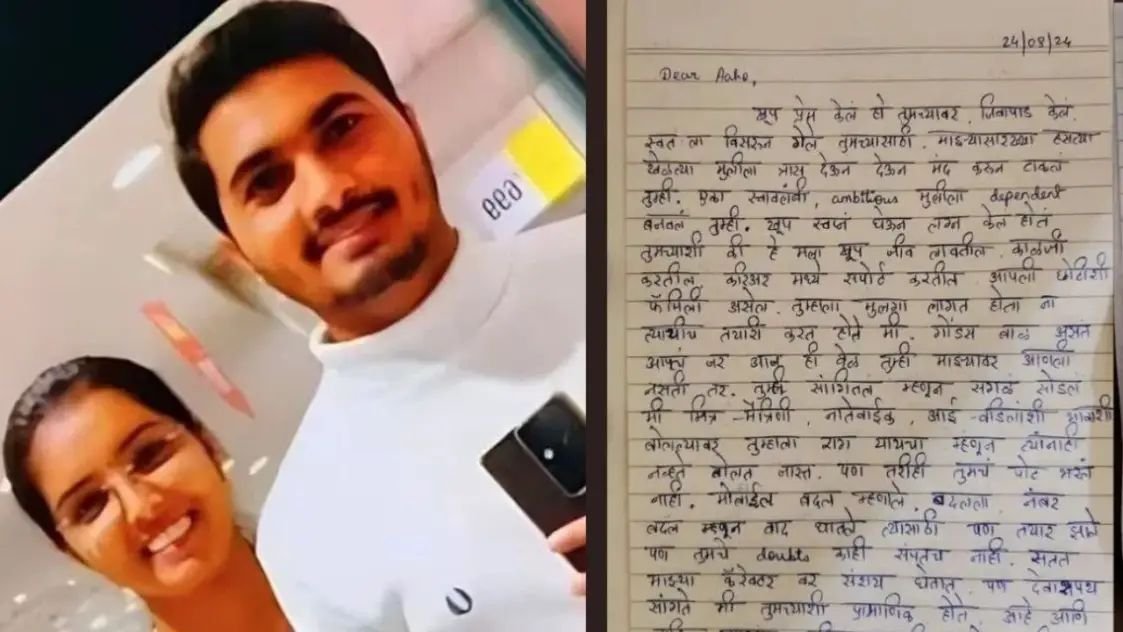 24/08/24
Dear Aaho,
खूप प्रेम केलं हो तुमच्यावर. जिवापाड केलं.
स्वतःला विसरून गेले तुमच्यासाठी. माझ्यासारख्या हसत्या
खेळत्या मुलीला त्रास देऊन देऊन मंद करून टाकलं
तुम्ही. एका स्वावलंबी, ambitious मुलीला dependent
बनवलं तुम्ही. खूप स्वप्नं घेऊन लग्न केलं होतं
तुमच्याशी की हे मला खूप जीव लावतील. काळजी
करतील करिअर मध्ये सपोर्ट करतील. आपली छोटीशी
फॅमिली असेल. तुम्हाला मुलगा लागत होता ना
त्याचीच तयारी करत होते मी. गोंडस बाळ असतं
आपलं जर आज ही वेळ तुम्ही माझ्यावर आणली
नसती तर. तुम्ही सांगितलं म्हणून सगळं सोडलं
मी मित्र-मैत्रिणी, नातेवाईक, आई-वडिलांशी
बोलल्यावर तुम्हाला राग यायचा म्हणून त्यांनाही
नव्हते बोलत जास्त. पण तरीही तुमचं पोट भरलं
नाही. मोबाईल बदल म्हणाले. बदलला नंबर
बदल म्हणून वाद घातले त्यासाठी पण तयार झाले
पण तुमचे doubts काही संपतच नाही. सतत
माझ्या कॅरेक्टर वर संशय घेतात. पण देवाशपथ
सांगते मी तुमच्याशी प्रामाणिक होते आहे आणि